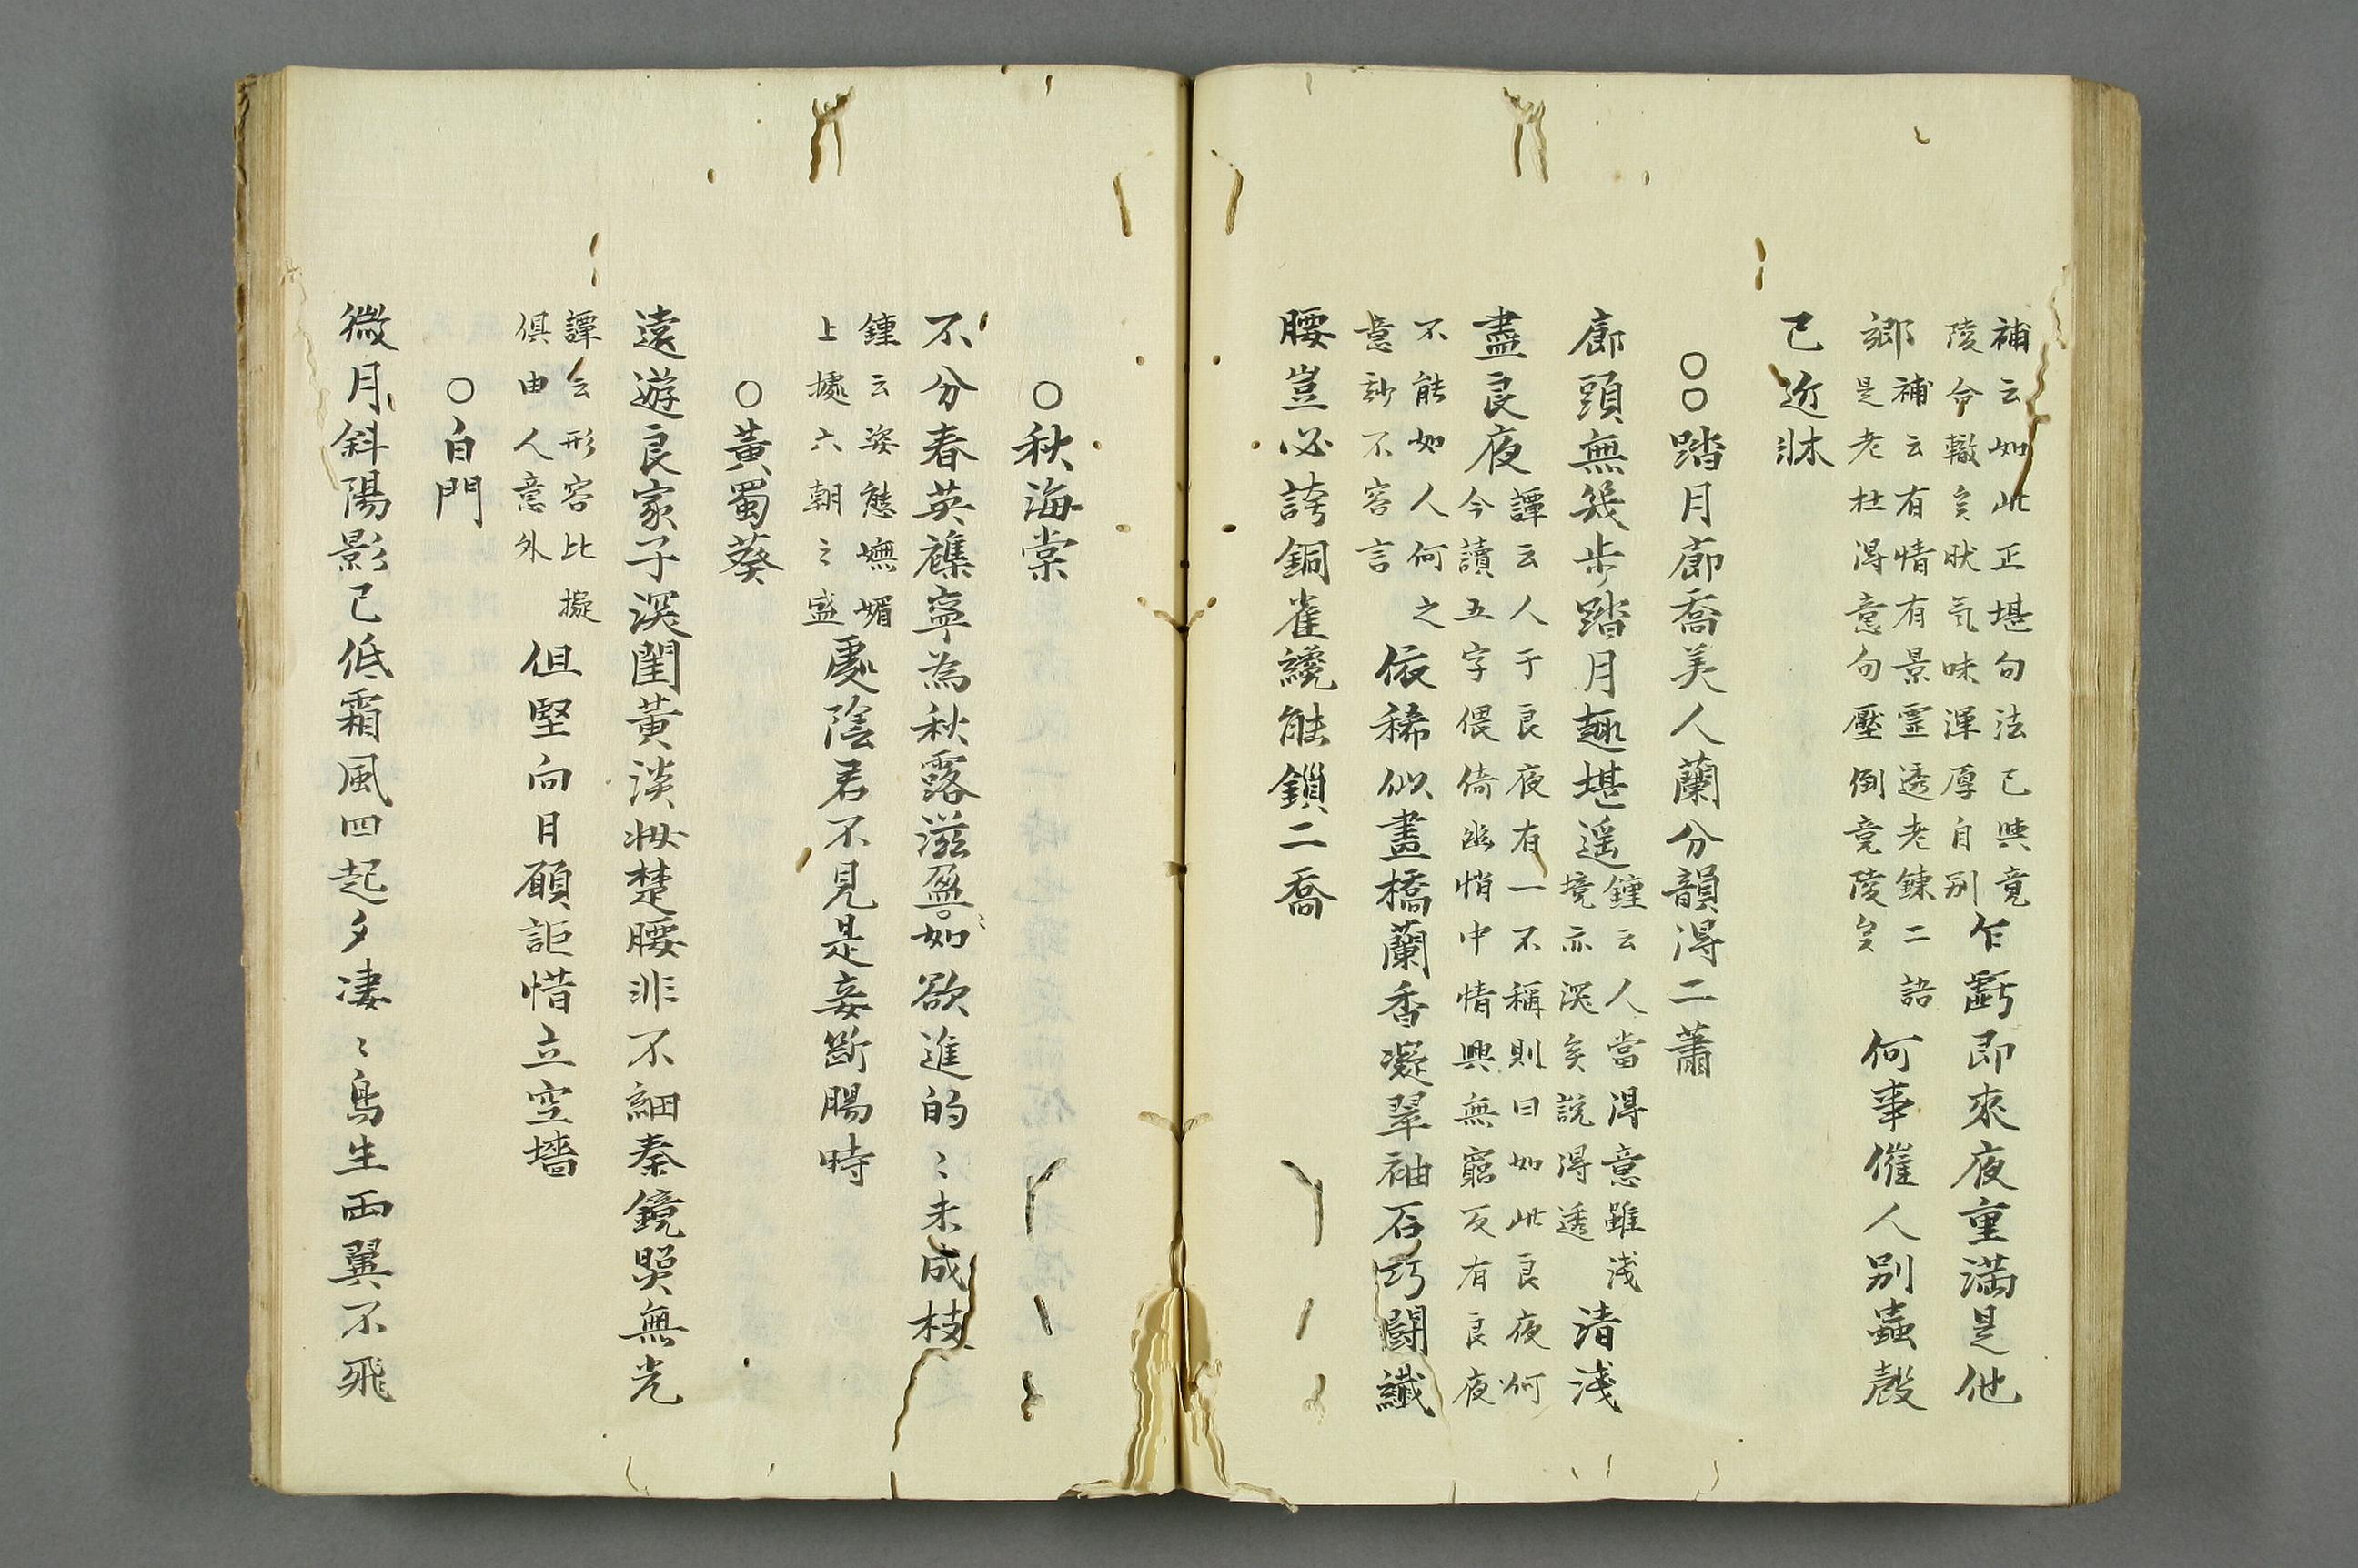 補云如此正堪句法已與竟
陵合轍矣狀気味渾厚自別
乍虧即來夜重滿是他
鄉
補云有情有景霊透老鍊二語
是老杜得意句壓倒竟陵矣
何事催人別蟲聲
已近牀
○○踏月廊喬美人蘭分韻得二蕭
廊頭無幾步踏月趣堪遥
鍾云人當得意雖淺
境亦深矣説得透
清淺
盡良夜
譚云人于良夜有一不稱則曰如此良夜何
今讀五字偎倚幽悄中情興無窮反有良夜
不能如人何之
意妙不容言
依稀似畫橋蘭香凝翠袖石巧鬪纖
腰豈必誇銅雀纔能鎖二喬
○秋海棠
不分春英雜寧為秋露滋盈〻如欲進的〻未成枝
鍾云姿態嫵媚
上據六朝之盛
處陰君不見是妾斷腸時
○黃蜀葵
遠遊良家子深閨黃淡妝楚腰非不細秦鏡照無光
譚云形容比擬
俱由人意外
但堅向日願詎惜立空墻
○白門
微月斜陽影已低霜風四起夕凄〻鳥生両翼不飛